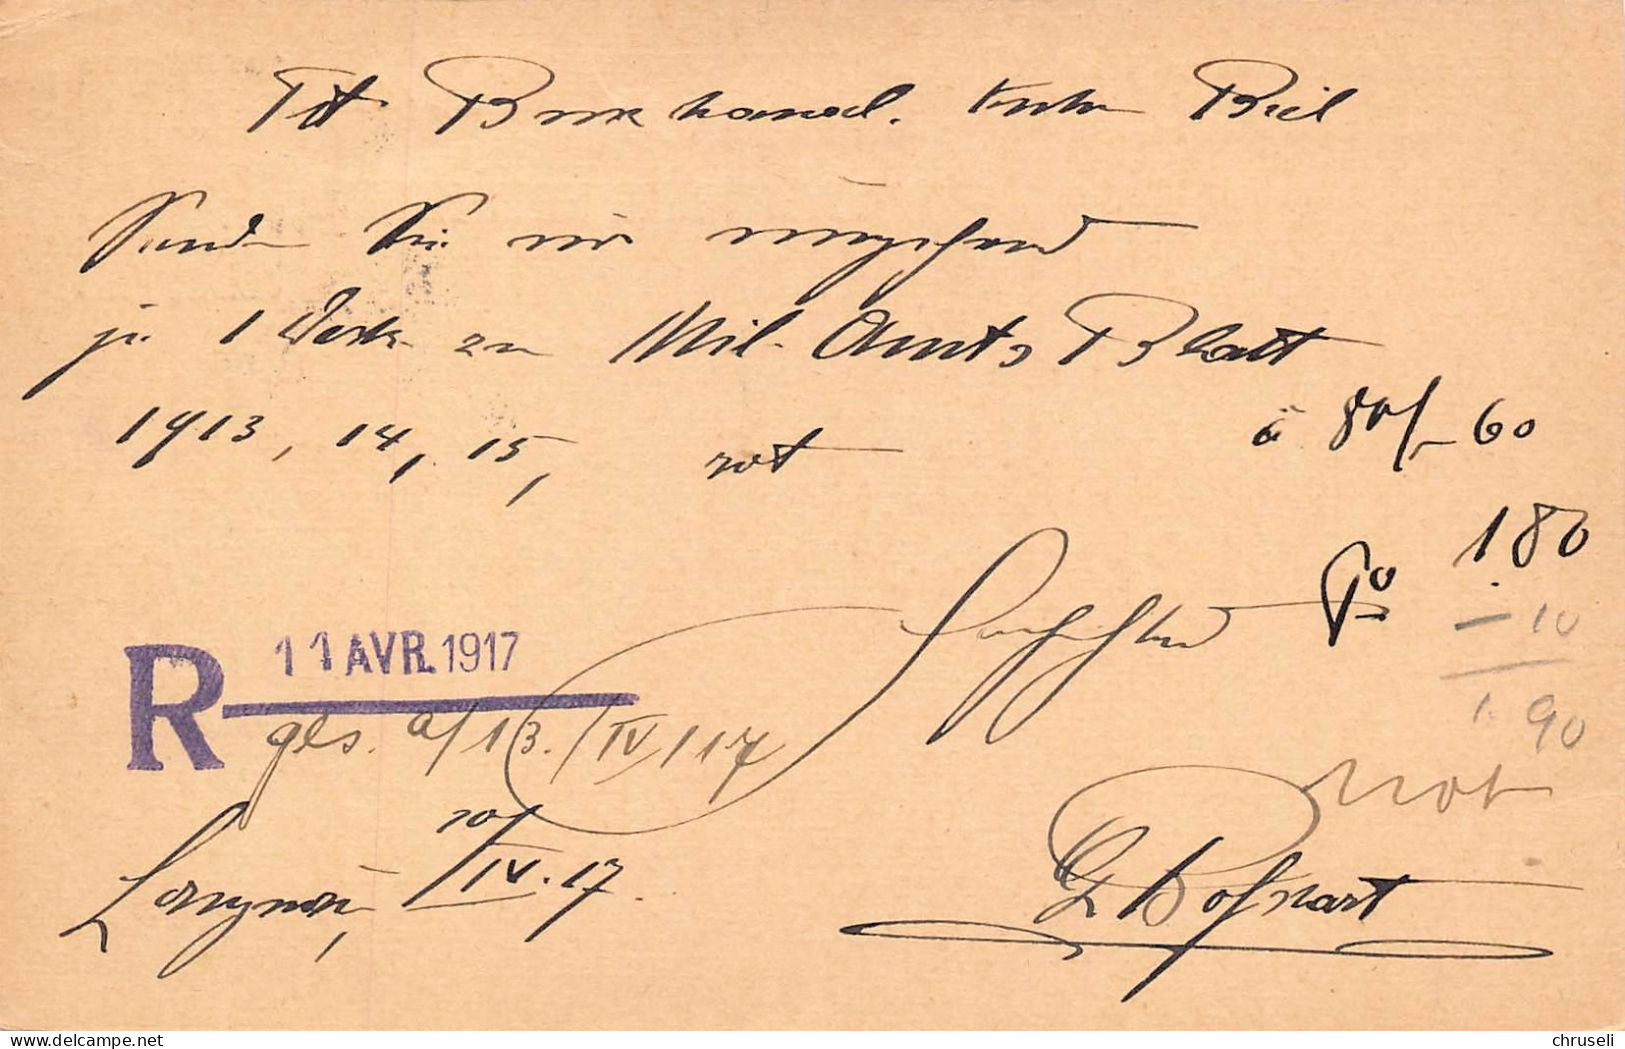 Tit. Buchhandl. Kuhn Biel
Senden Sie mir umgehend
je 1 Deck zu Mil. Amts Blatt
1913, 14, 15, rot à 80/-60
180
Hochachtend
- 10
R 11 AVR. 1917
1.90
ges. a/13./IV/17
rot
Langnau, 10/IV.17.
Bosshart
delcampe.net
chruseli